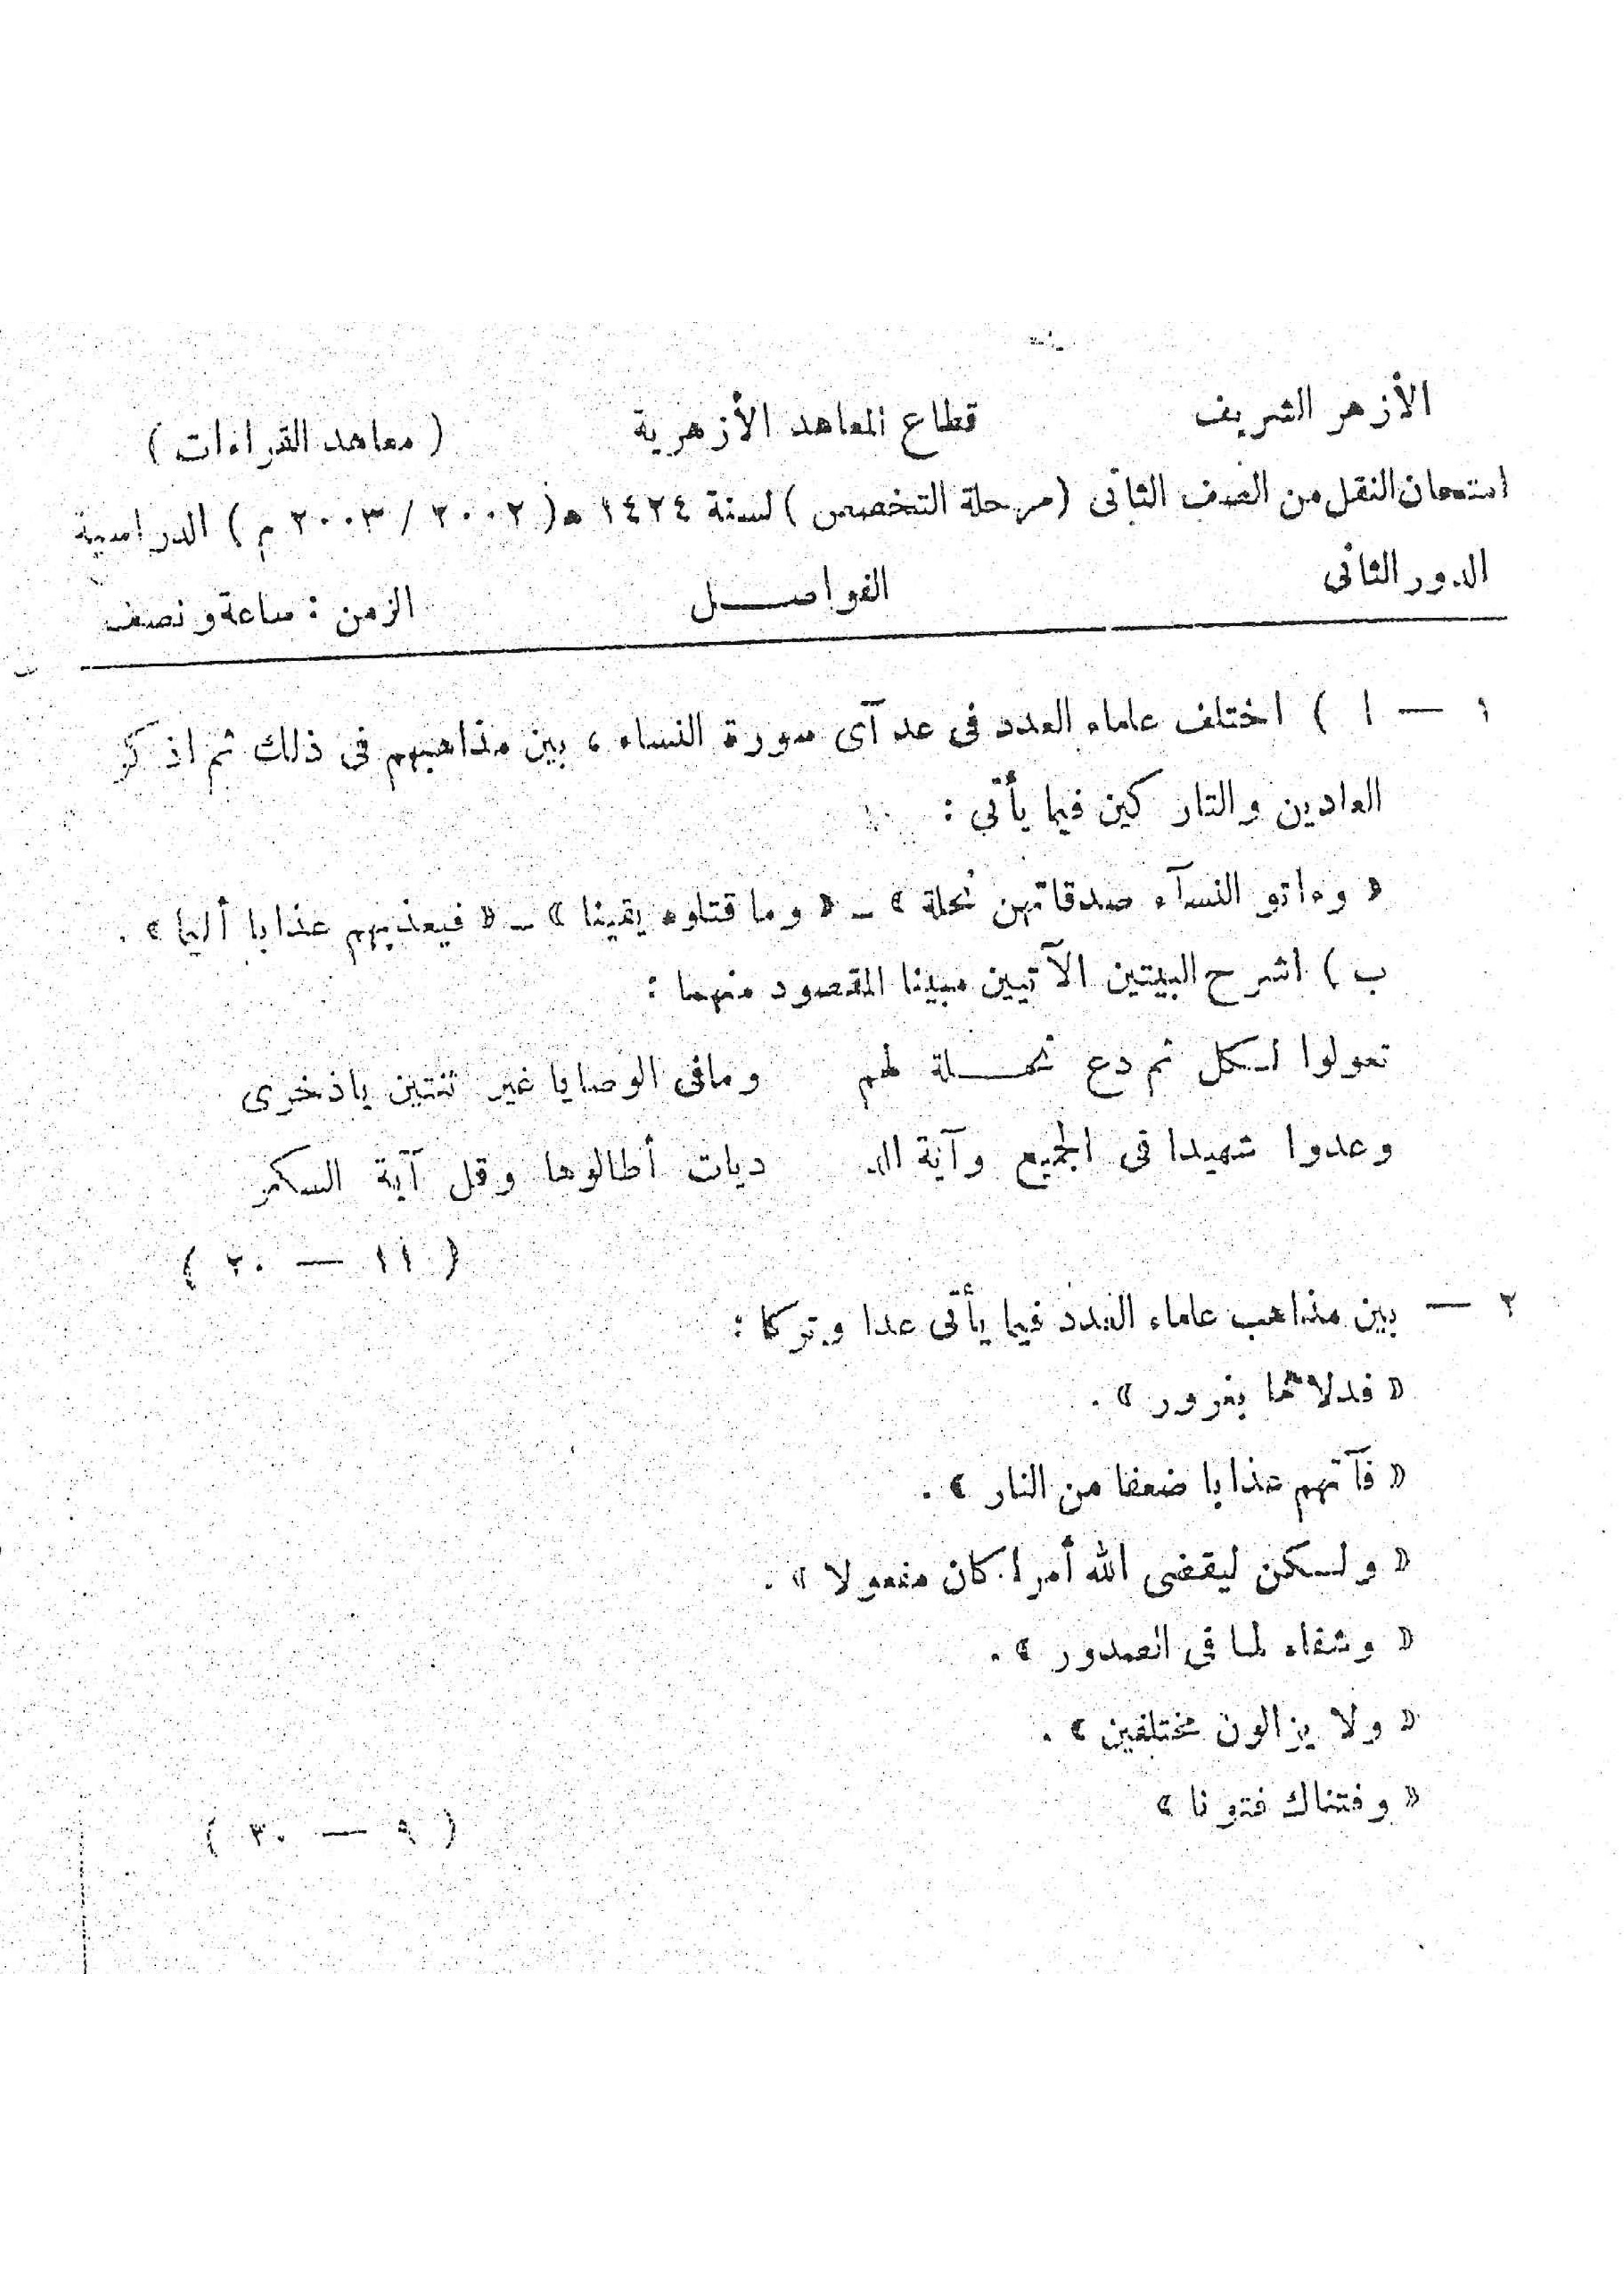 الأزهر الشريف قطاع المعاهد الأزهرية ( معاهد القراءات )
امتحان النقل من الصف الثانى ( مرحلة التخصص ) لسنة ١٤٢٤ ه ( ٢٠٠٢ / ٢٠٠٣ م ) الدراسية
الدور الثانى الفواصــل الزمن : ساعة ونصف
١ — ا ) اختلف علماء العدد فى عد آى سورة النساء ، بين مذاهبهم فى ذلك ثم اذكر
العادين والتاركين فيما يأتى :
« وءاتو النسآء صدقاتهن نحلة » ـ « وما قتلوه يقينا » ـ « فيعذبهم عذابا أليما » .
ب ) اشرح البيتين الآتيين مبينا المقصود منهما :
تعولوا لـكل ثم دع نحـــلة لهم ومافى الوصايا غير ثنتين ياذخرى
وعدوا شهيدا فى الجميع وآية الد ديات أطالوها وقل آية السكر
( ١١ — ٢٠ )
٢ — بين مذاهب علماء العدد فيما يأتى عدا وتركا :
« فدلاهما بغرور » .
« فآتهم عذابا ضعفا من النار » .
« ولـكن ليقضى الله أمرا كان مفعولا » .
« وشفاء لما فى الصدور » .
« ولا يزالون مختلفين » .
« وفتناك فتونا »
( ٩ — ٣٠ )